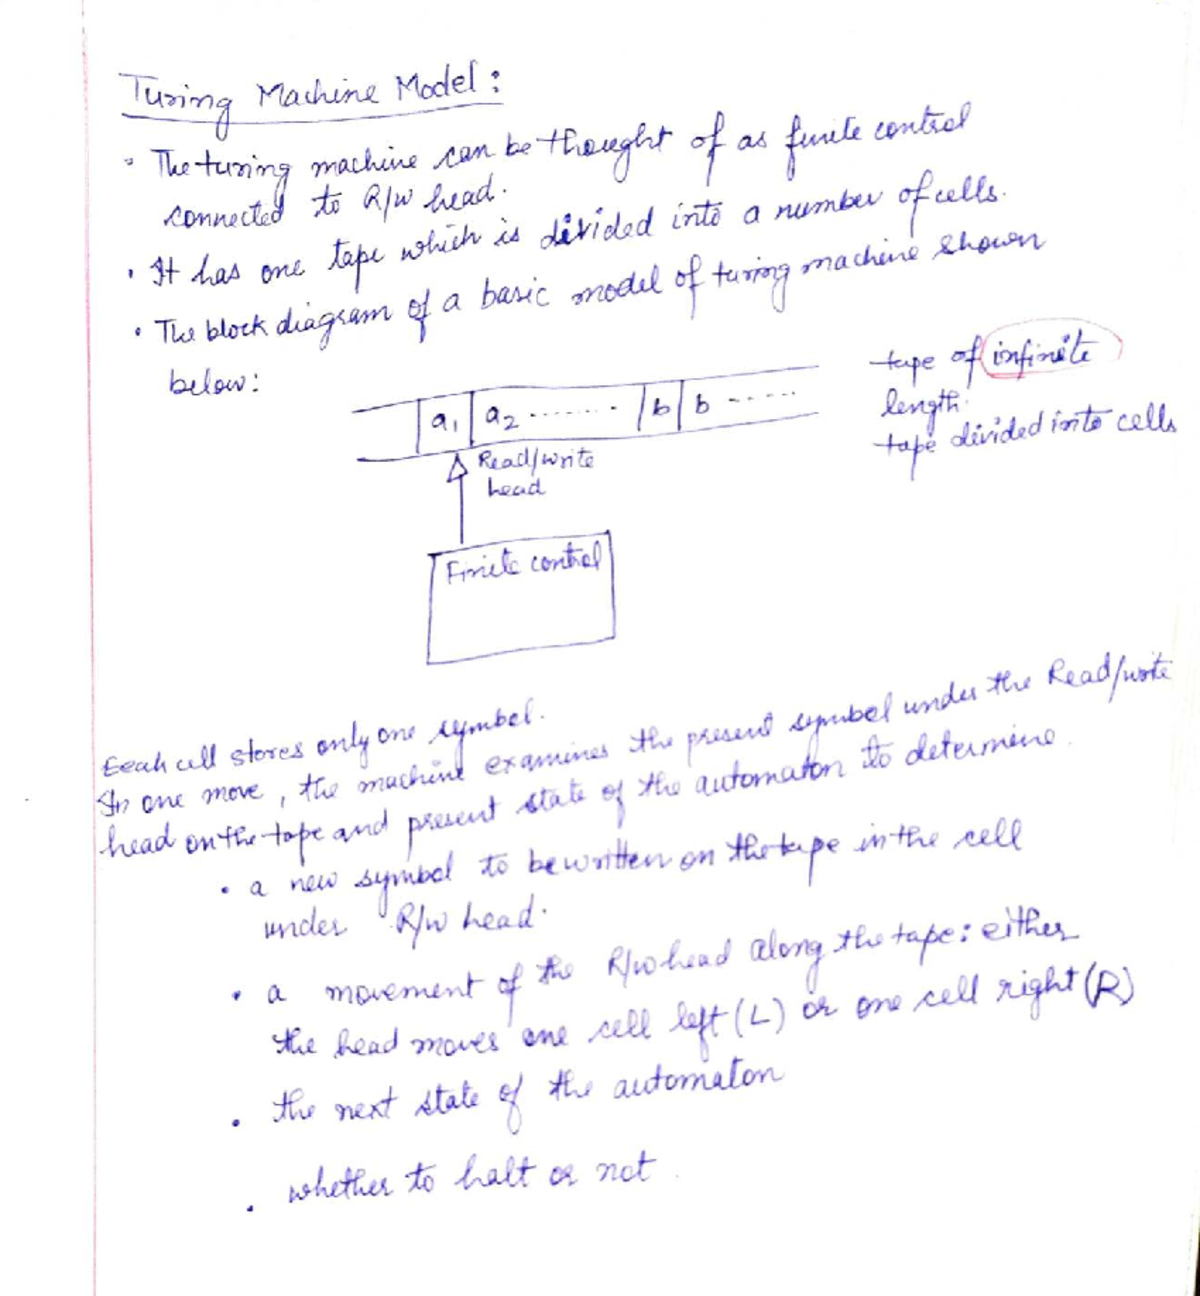 Turing Machine Model:
• The turing machine can be thought of as finite control
connected to R/W head.
• It has one tape which is divided into a number of cells.
• The block diagram of a basic model of turing machine shown
below:
tape of infinite
length.
tape divided into cells
a1 a2 -------- b b -----
Read/write
head
Finite control
Eeah cell stores only one symbol.
In one move, the machine examines the present symbol under the Read/write
head on the tape and present state of the automaton to determine.
• a new symbol to be written on the tape in the cell
under R/W head.
• a movement of the R/W head along the tape: either
the head moves one cell left (L) or one cell right (R)
• the next state of the automaton
• whether to halt or not.